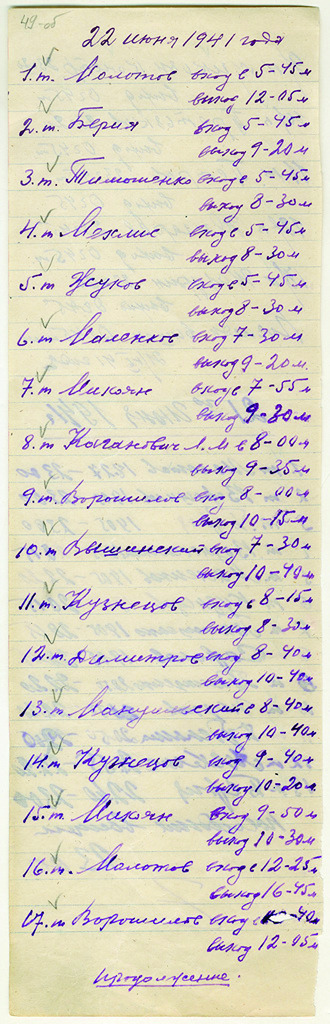 49-об
22 июня 1941 года
1. т. Молотов вход в 5-45м
выход 12-05м
2. т. Берия вход 5-45м
выход 9-20м
3. т. Тимошенко вход в 5-45м
выход 8-30м
4. т. Мехлис вход в 5-45м
выход 8-30м
5. т. Жуков вход в 5-45м
выход 8-30м
6. т. Маленков вход 7-30м
выход 9-20м.
7. т. Микоян вход в 7-55м
выход 9-30м
8. т. Каганович Л.М в 8-00м
выход 9-35м
9. т. Ворошилов вход 8-00м
выход 10-15м
10. т Вышинский вход 7-30м
выход 10-40м
11. т. Кузнецов вход в 8-15м
выход 8-30м
12. т. Димитров вход 8-40м
выход 10-40м
13. т. Мануильский в 8-40м
выход 10-40м
14. т Кузнецов вход 9-40м
выход 10-20м.
15. т. Микоян вход 9-50м
выход 10-30м
16. т. Молотов вход в 12-25м
выход 16-45м
17. т Ворошилов вход в -40м
выход 12-05м
продолжение.